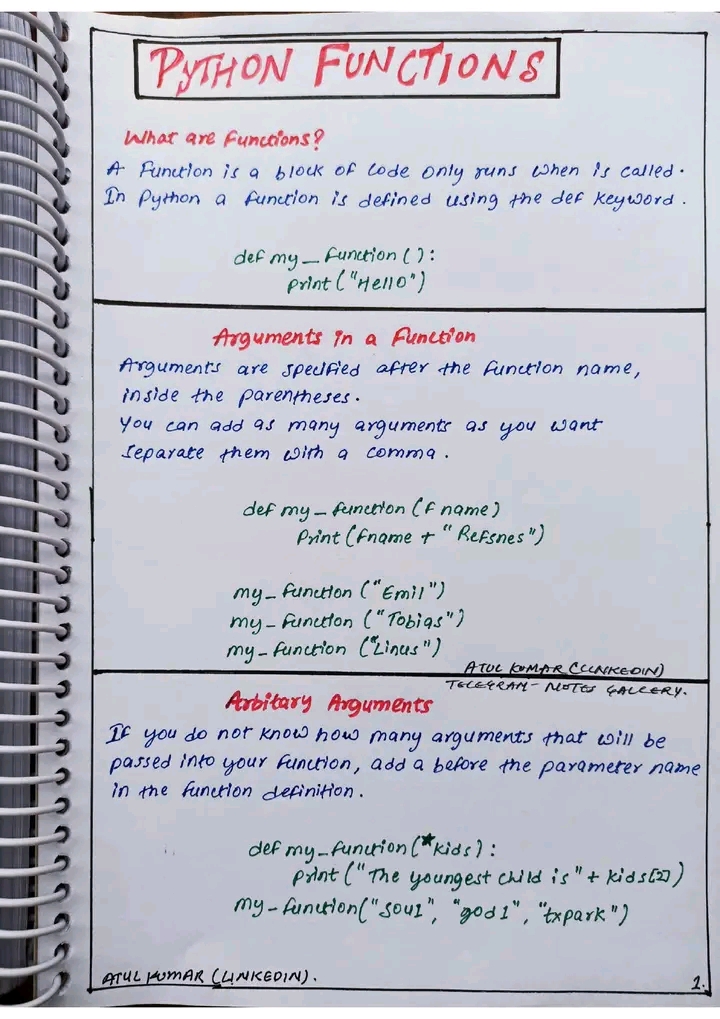 PYTHON FUNCTIONS
What are Functions?
A Function is a block of code only runs when is called.
In Python a function is defined using the def keyword.
def my_function():
print("Hello")
Arguments in a Function
Arguments are specified after the function name,
inside the parentheses.
You can add as many arguments as you want
separate them with a comma.
def my_function(fname)
Print(fname + "Refsnes")
my_function("Emil")
my_function("Tobias")
my_function("Linus")
ATUL KUMAR (LINKEDIN)
TELEGRAM - NOTES GALLERY.
Arbitary Arguments
If you do not know how many arguments that will be
passed into your function, add a before the parameter name
in the function definition.
def my_function(*kids):
print("The youngest child is" + kids[2])
my-function("soul", "god1", "txpark")
ATUL KUMAR (LINKEDIN).
1.